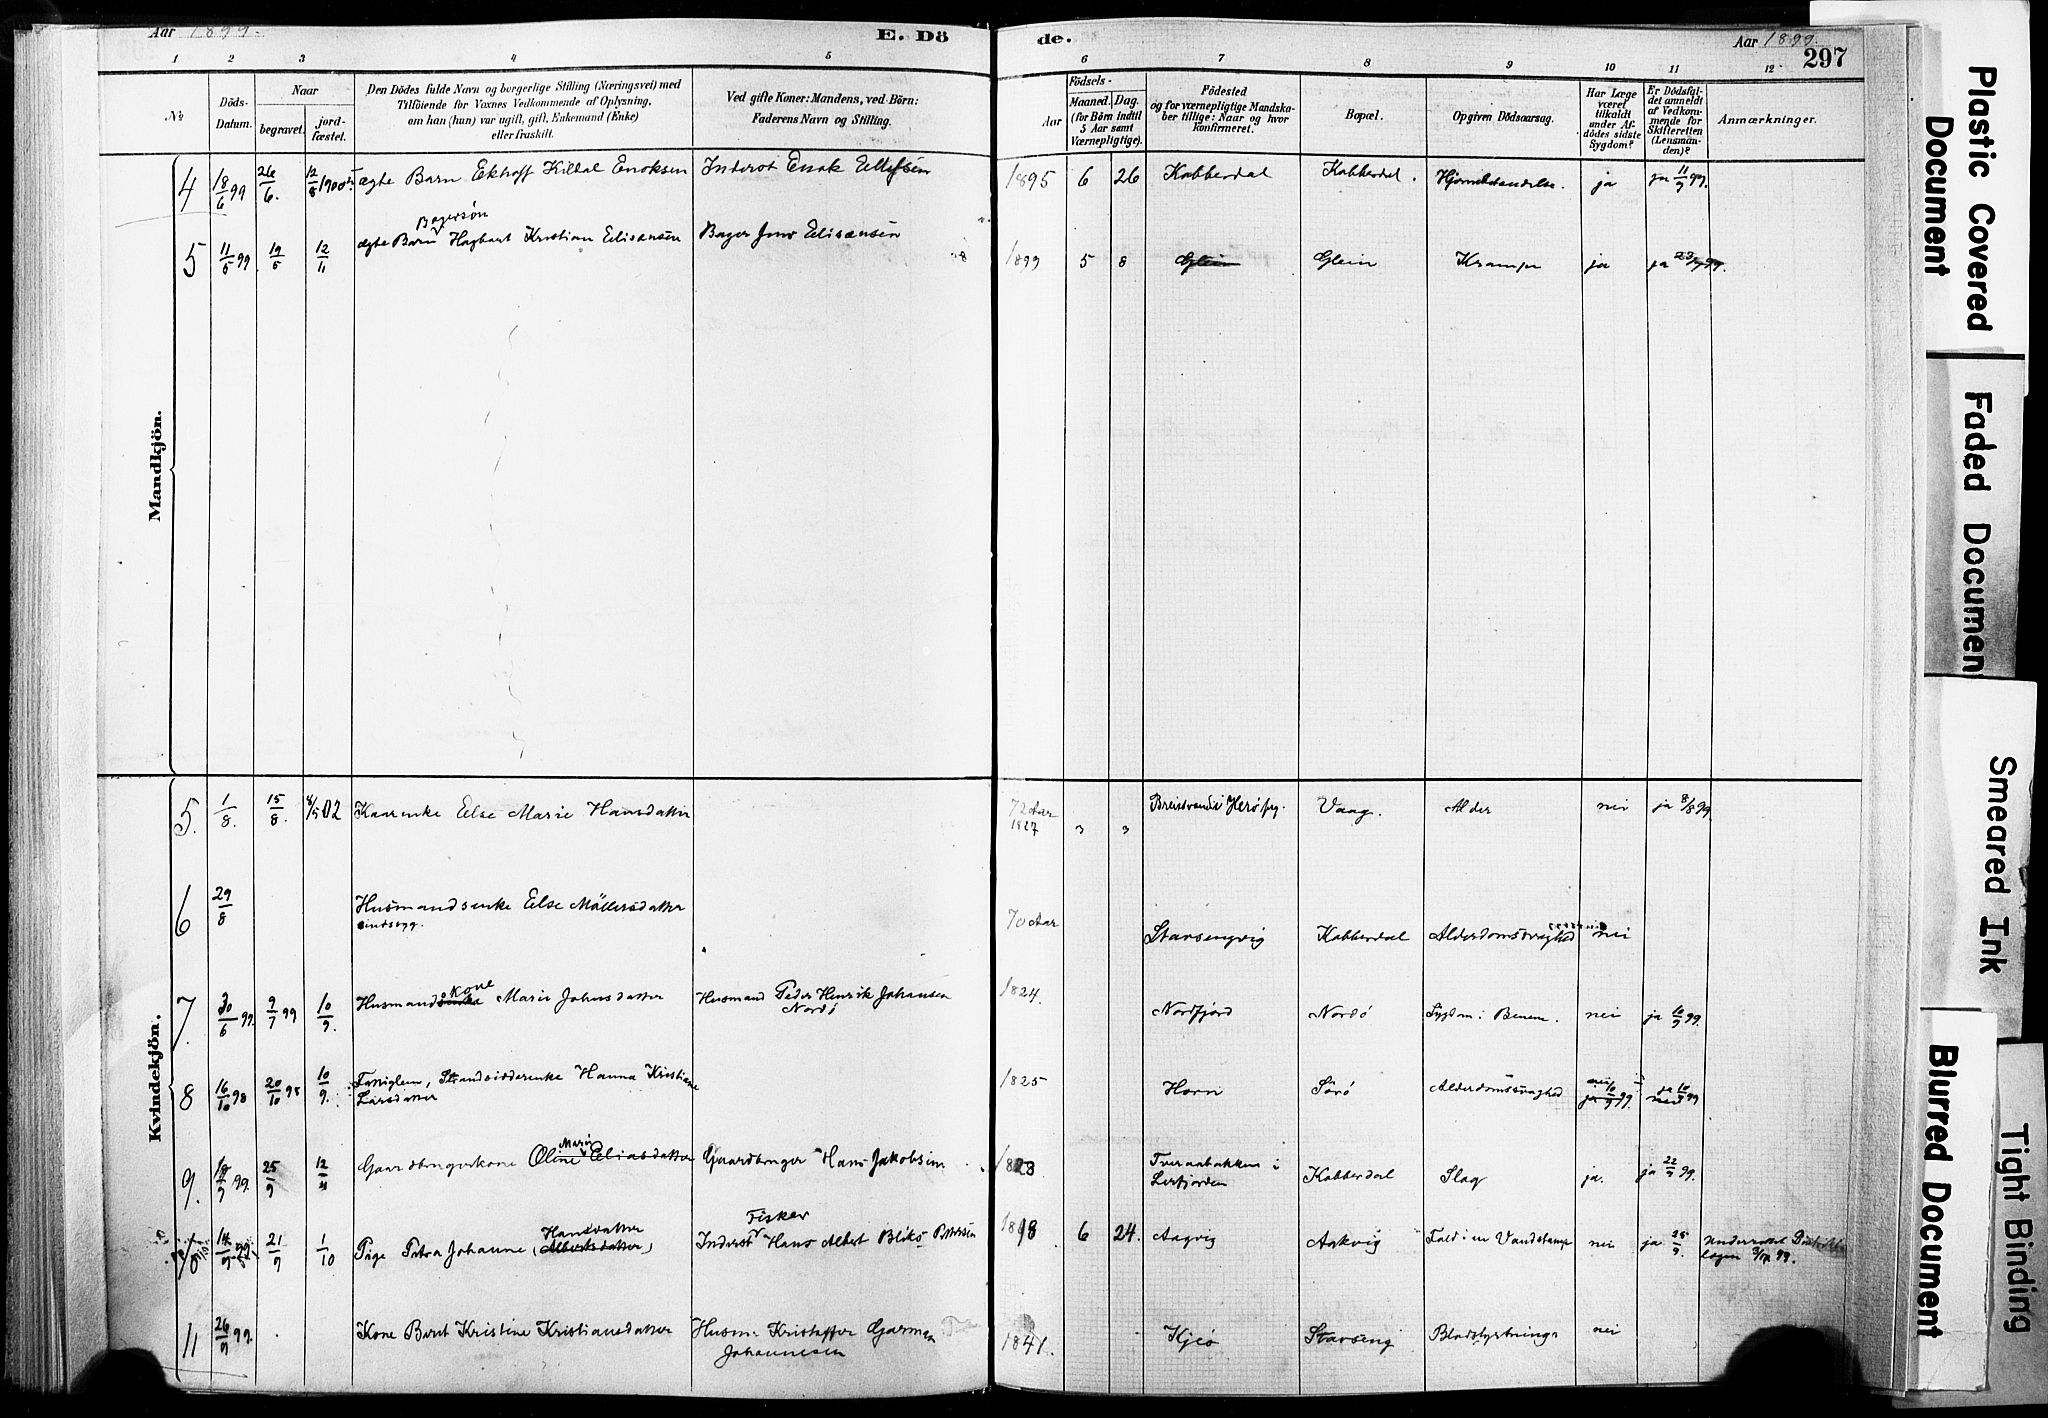 Aar 1899.
E. Dö
de.
Aar 1899.
297
1 2 3 4 5
6 7 8 9 10 11 12
No
Döds-
Datum.
Naar
begravet.
jord-
fæstet.
Den Dödes fulde Navn og borgerlige Stilling (Næringsvei) med
Tilföiende for Voxnes Vedkommende af Oplysning,
om han (hun) var ugift, gift, Enkemand (Enke)
eller fraskilt.
Ved gifte Koner: Mandens, ved Börn:
Faderens Navn og Stilling.
Födsels-
Aar
Maaned.
Dag.
(for Börn indtil
5 Aar samt
Værnepligtige).
Födested
og for værnepligtige Mandska-
ber tillige: Naar og hvor
konfirmeret.
Bopæl.
Opgiven Dödsaarsag.
Har Læge
været
tilkaldt
under Af-
dödes sidste
Sygdom?
Er Dödsfal-
det anmeldt
af Vedkom-
mende for
Skifteretten
(Lensman-
den)?
Anmærkninger.
Mandkjön.
4 18/6 99 26/6. 12/8 1900 ægte Barn Ekhoff Kildal Enoksen Inderst Enok Ellefsen 1895 6 26 Kobberdal Kobberdal. ja ja 11/9 99.
Bagersøn
5 11/5 99. 19/5 12/11 ægte Barn Hagbart Kristian Eliseussen Bager Jens Eliseussen 1899 5 8 Glein Glein Krampe ja ja 23/9 99.
Kvindekjön.
5. 1/8. 15/8. 4/5 02 Kaarenke Else Marie Hansdatter 72 Aar
1827 Breistrand i Herø pg. Vaag. Alder nei ja 8/8 99.
6 29/8 Husmandsenke Else Möllersdatter
sindssyg. 70 Aar Stavsengvig Kobberdal Alderdomssvaghed nei
Kone
7. 30/6 99. 9/7 99 10/9. Husmandsenke Marie Johnsdatter Husmand Peder Henrik Johansen
Nordø 1824. Nordfjord Nordø Sygdom i Benene. nei ja 10/9 99.
8 16/10 98 20/10 98 10/9. Fattiglem, Strandsidderenke Hanna Kristiane
Larsdatter 1825 Horn Sørø Alderdomssvaghed nei ja 10/9 99. ja nei 10/9 99
Marie
9. 18/9 99. 25/9 12/11 Gaardbrugerkone Oline Eliasdatter Gaardbruger Hans Jakobsen 1828 Tveraabakken i
Leirfjorden Kobberdal Slag ja. ja 22/9 99.
Hansdatter
Fisker
10 14/9 99. 21/9 1/10 Pige Petra Johanne (Albertsdatter) Inderst Hans Albert Bliks Petersen 1898 6 24. Aagvig Aakvig Fald i en Vandstamp nei ja 25/9.
11 26/9 99. Kone Berit Kristine Kristiansdatter Husm. Kristoffer Garman
Johannesen 1841. Kjeø Stavseng Blodstyrtning nei
Plastic Covered
Document
Faded Documen
Smeared Ink
Blurred Document
Tight Binding